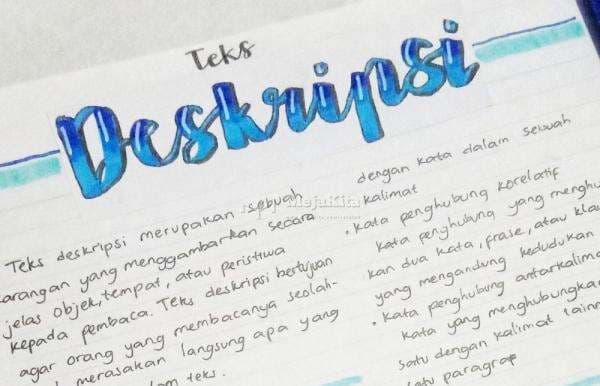 Teks
Deskripsi
Teks deskripsi merupakan sebuah
karangan yang menggambarkan secara
jelas objek, tempat, atau peristiwa
kepada pembaca. Teks deskripsi bertujuan
agar orang yang membacanya seolah-
merasakan langsung apa yang
teks.
dengan kata dalam sebuah
kalimat
• Kata penghubung korelatif
kata penghubung yang menghu
kan dua kata, frase, atau klau
yang mengandung kedudukan
• Kata penghubung antarkalima
kata yang menghubungkan
satu dengan kalimat lainn
satu paragraf
MejaKita